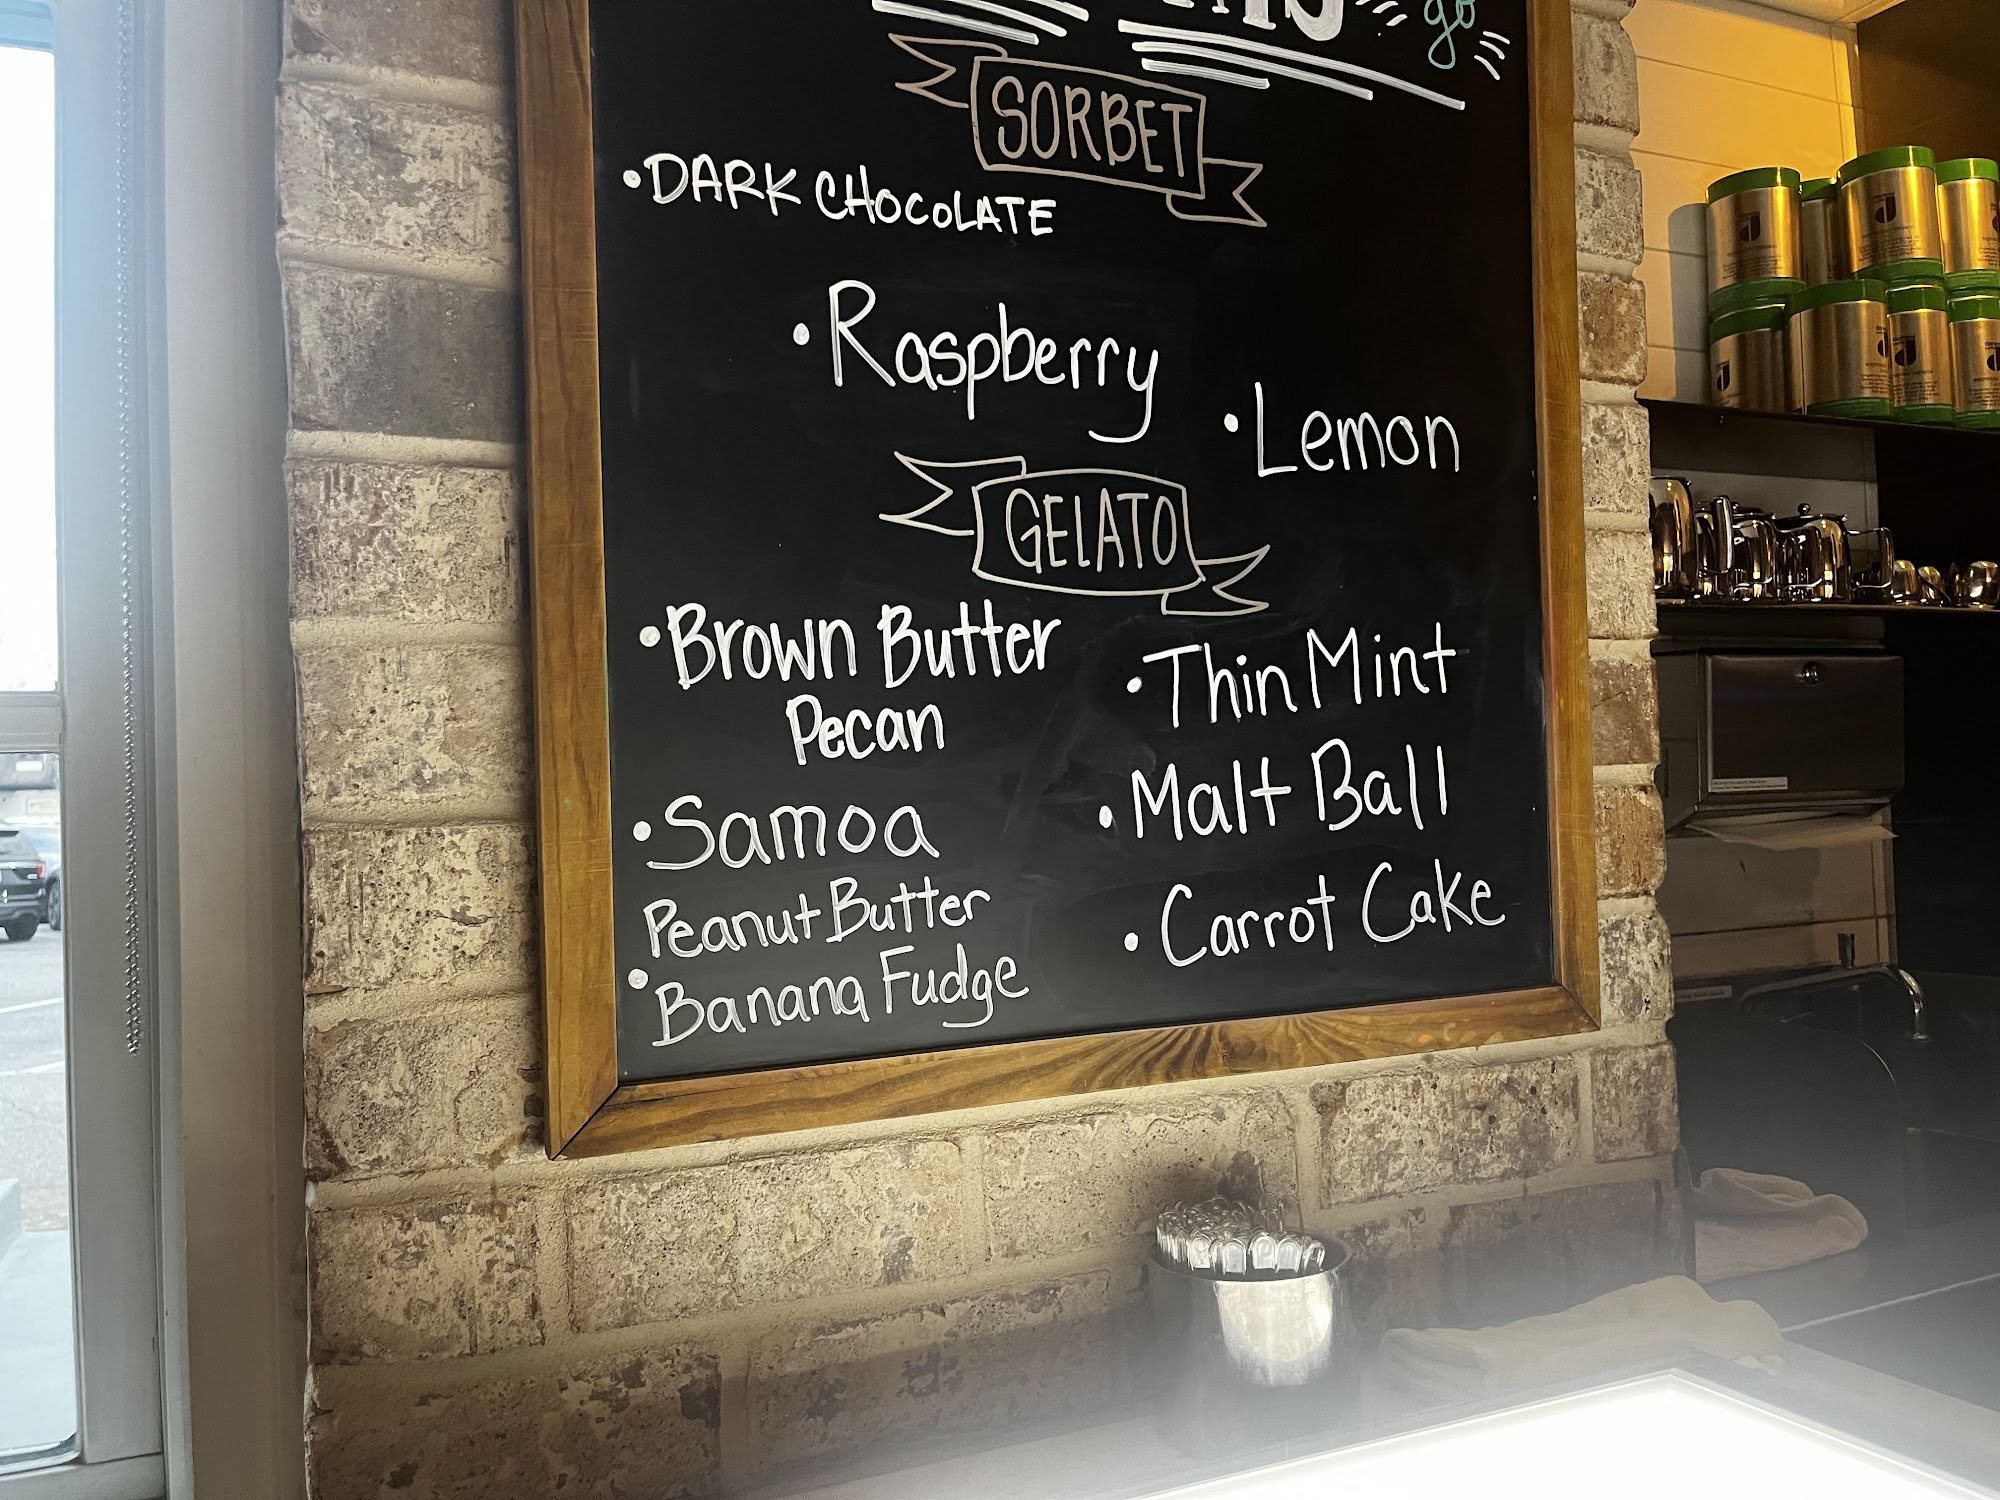 go
SORBET
• DARK CHOCOLATE
• Raspberry
• Lemon
GELATO
• Brown Butter
Pecan
• Samoa
Peanut Butter
• Banana Fudge
• Thin Mint
• Malt Ball
• Carrot Cake